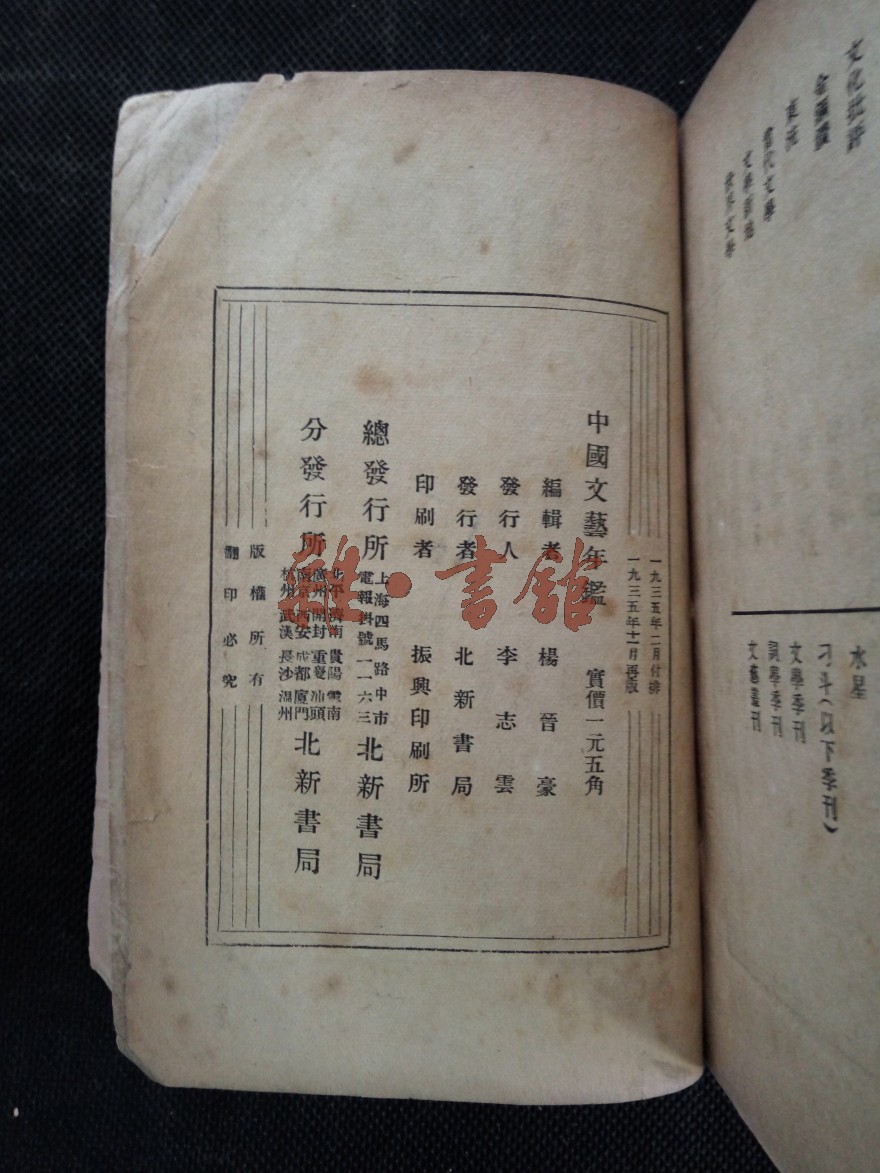 文化批評
當代文學
水星
刁斗(以下季刊)
文學季刊
詞學季刊
文藝叢刊
一九三五年二月付排
一九三五年十二月再版
中國文藝年鑑 實價一元五角
編輯者 楊晉豪
發行人 李志雲
發行者 北新書局
印刷者 振興印刷所
總發行所 上海四馬路中市 電報掛號一一六三 北新書局
分發行所 北平濟南貴陽雲南 廣州開封重慶汕頭 南京西安成都廈門 杭州武漢長沙溫州 北新書局
版權所有
翻印必究
雜·書館